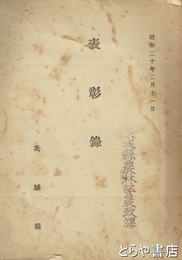 昭和二十年二月十一日
表彰録
茨城縣
茨城縣農林部農政課
とらや書店